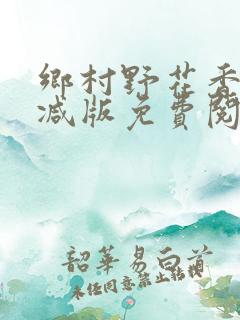 鄉村野花香
減版免費閱
韶華易白首
未任同意禁止轉載